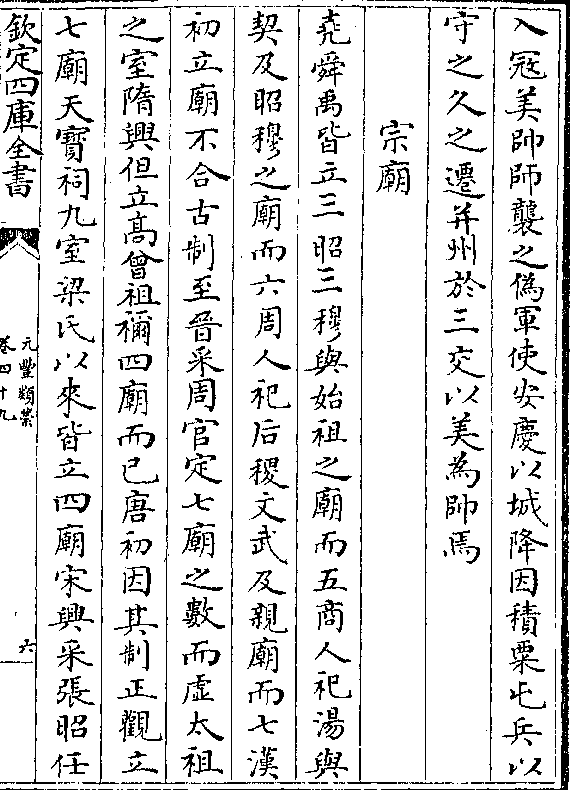 入冦美帥師襲之偽軍使安慶以城降因積粟屯兵以
守之久之遷并州於三交以美為帥焉
宗廟
堯舜禹皆立三昭三穆與始祖之廟而五商人祀湯與
契及昭穆之廟而六周人祀后稷文武及親廟而七漢
初立廟不合古制至晉采周官定七廟之數而虛太祖
之室隋興但立髙曾祖禰四廟而已唐初因其制正觀立
七廟天寳祠九室梁氏以來皆立四廟宋興采張昭任
欽定四庫全書
元豐類藁
卷四十九
六